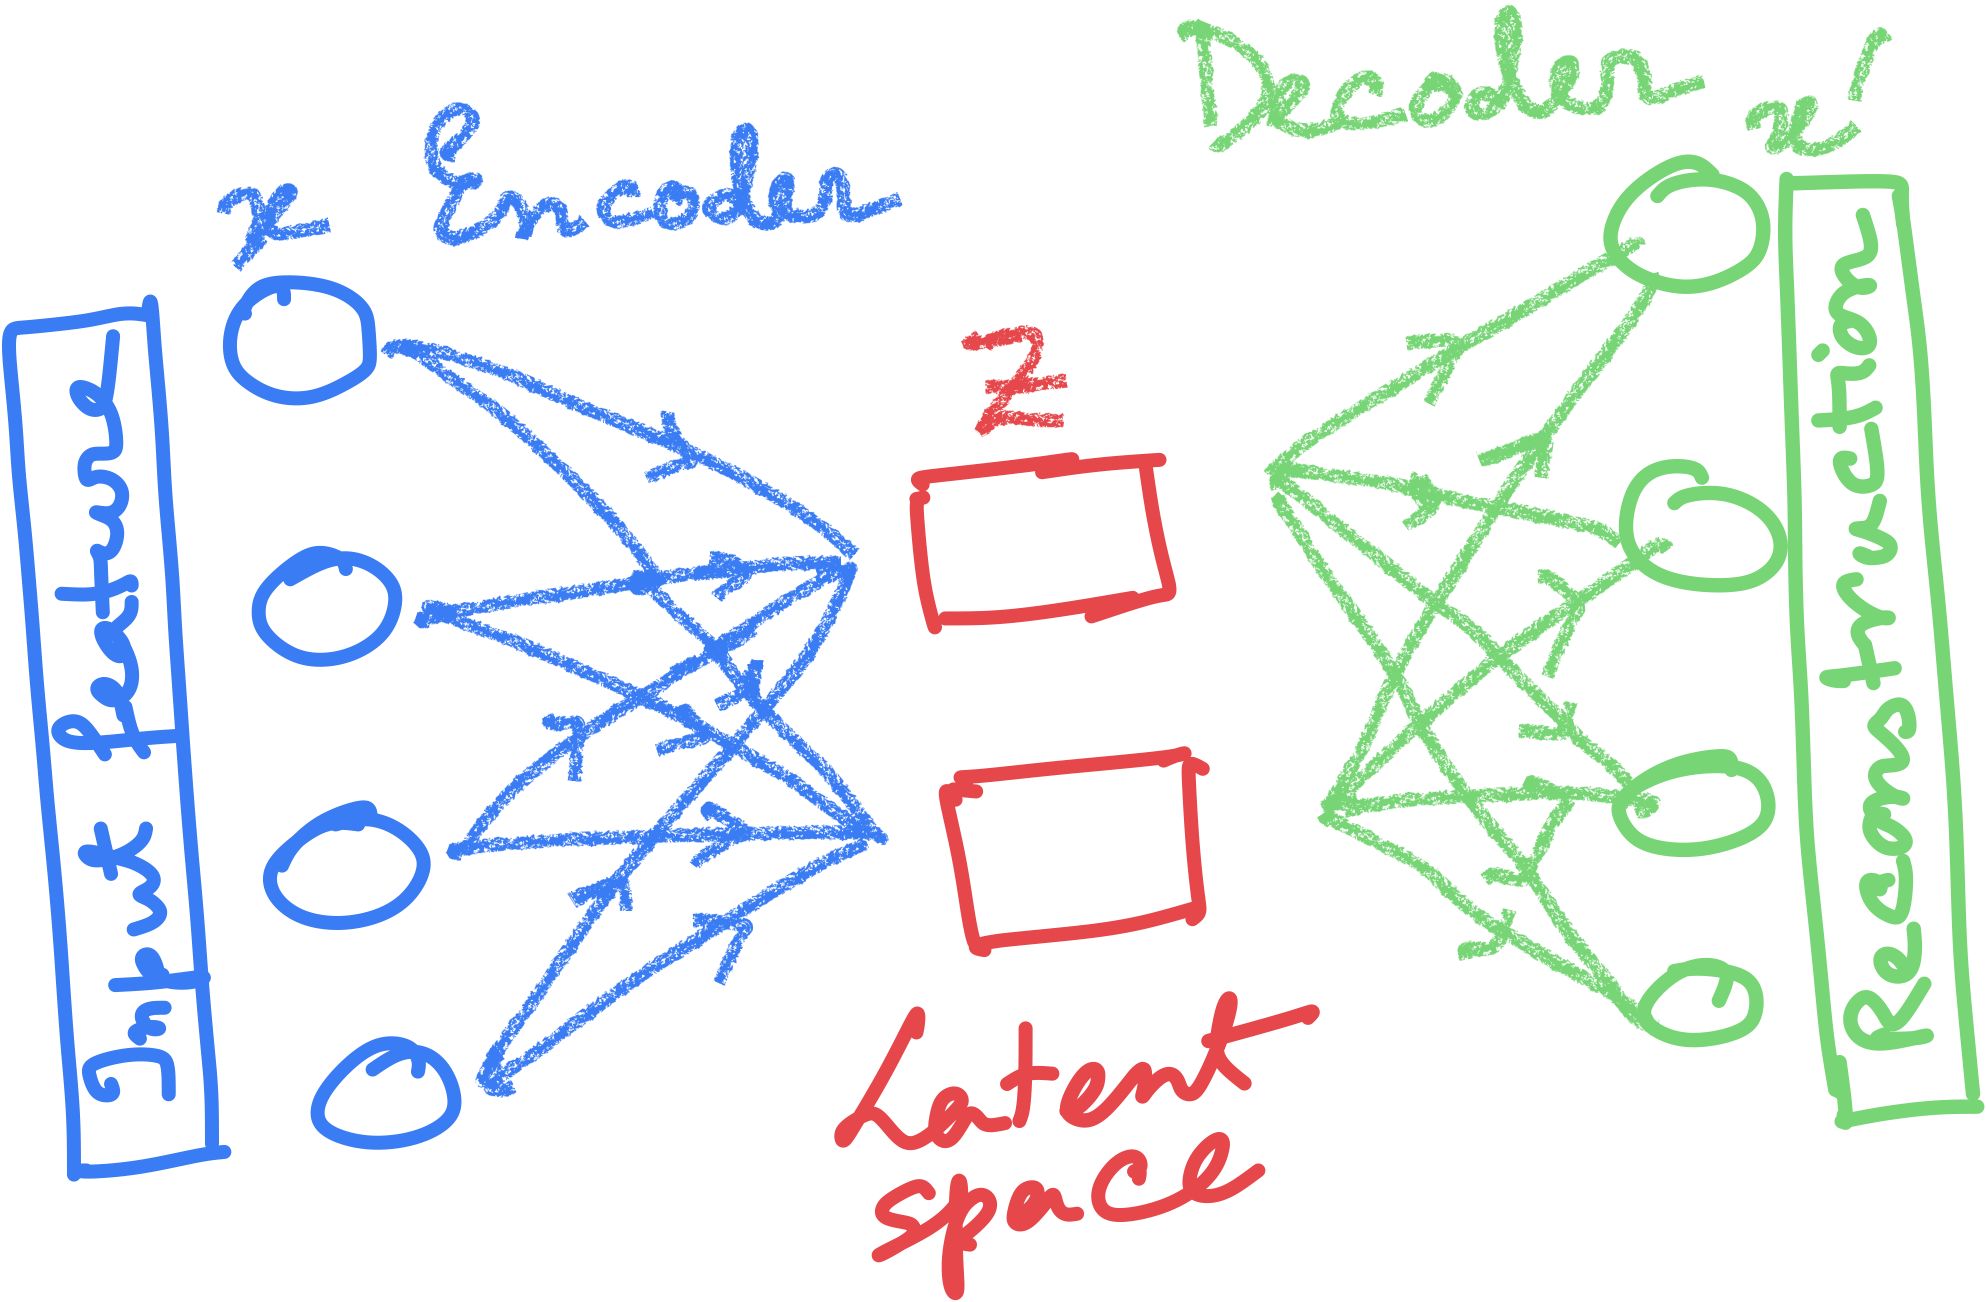 Input feature
x
Encoder
Z
Latent
space
Decoder
x'
Reconstruction